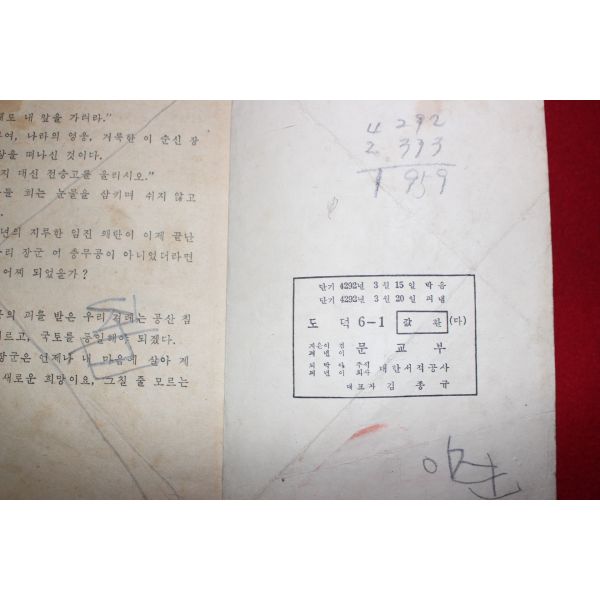 내 앞을 가려라."
나라의 영웅, 거룩한 이 순신 장
떠나신 것이다.
대신 전승고를 울리시오."
희는 눈물을 삼키며 쉬지 않고
지루한 임진 왜란이 이제 끝난
장군 여 충무공이 아니었더라면
어찌 되었을까?
피를 받은 우리 겨레는 공산 침
국토를 통일해야 되겠다.
언제나 내 마음에 살아 계
새로운 희망이요, 그칠 줄 모르는
4 292
2 333
1 959
단기 4292년 3월 15일 박음
단기 4292년 3월 20일 펴냄
도 덕 6-1 값 환 (다)
지은이 겸
펴낸이 문 교 부
주식
회사 대한서적공사
대표자 김 종 규